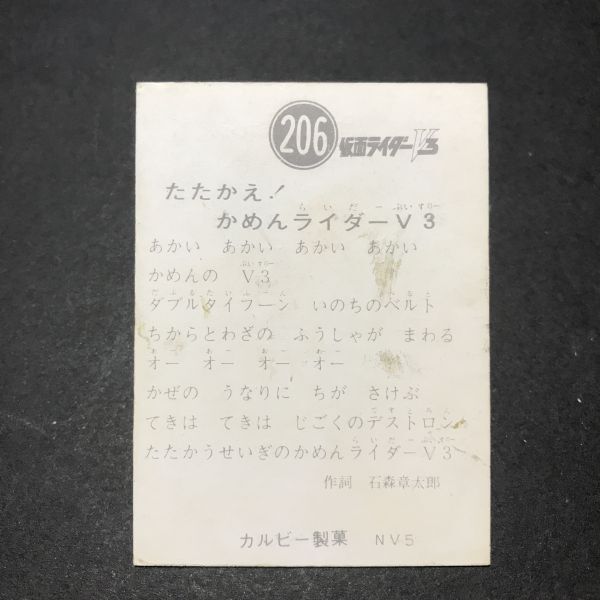 206 仮面ライダーV3
たたかえ!
かめんライダーV3
あかい あかい あかい あかい
かめんの V3
ダブルタイフーン いのちのベルト
ちからとわざの ふうしゃが まわる
オー オー オー オー
かぜの うなりに ちが さけぶ
てきは てきは じごくのデストロン
たたかうせいぎのかめんライダーV3
作詞 石森章太郎
カルビー製菓 NV5